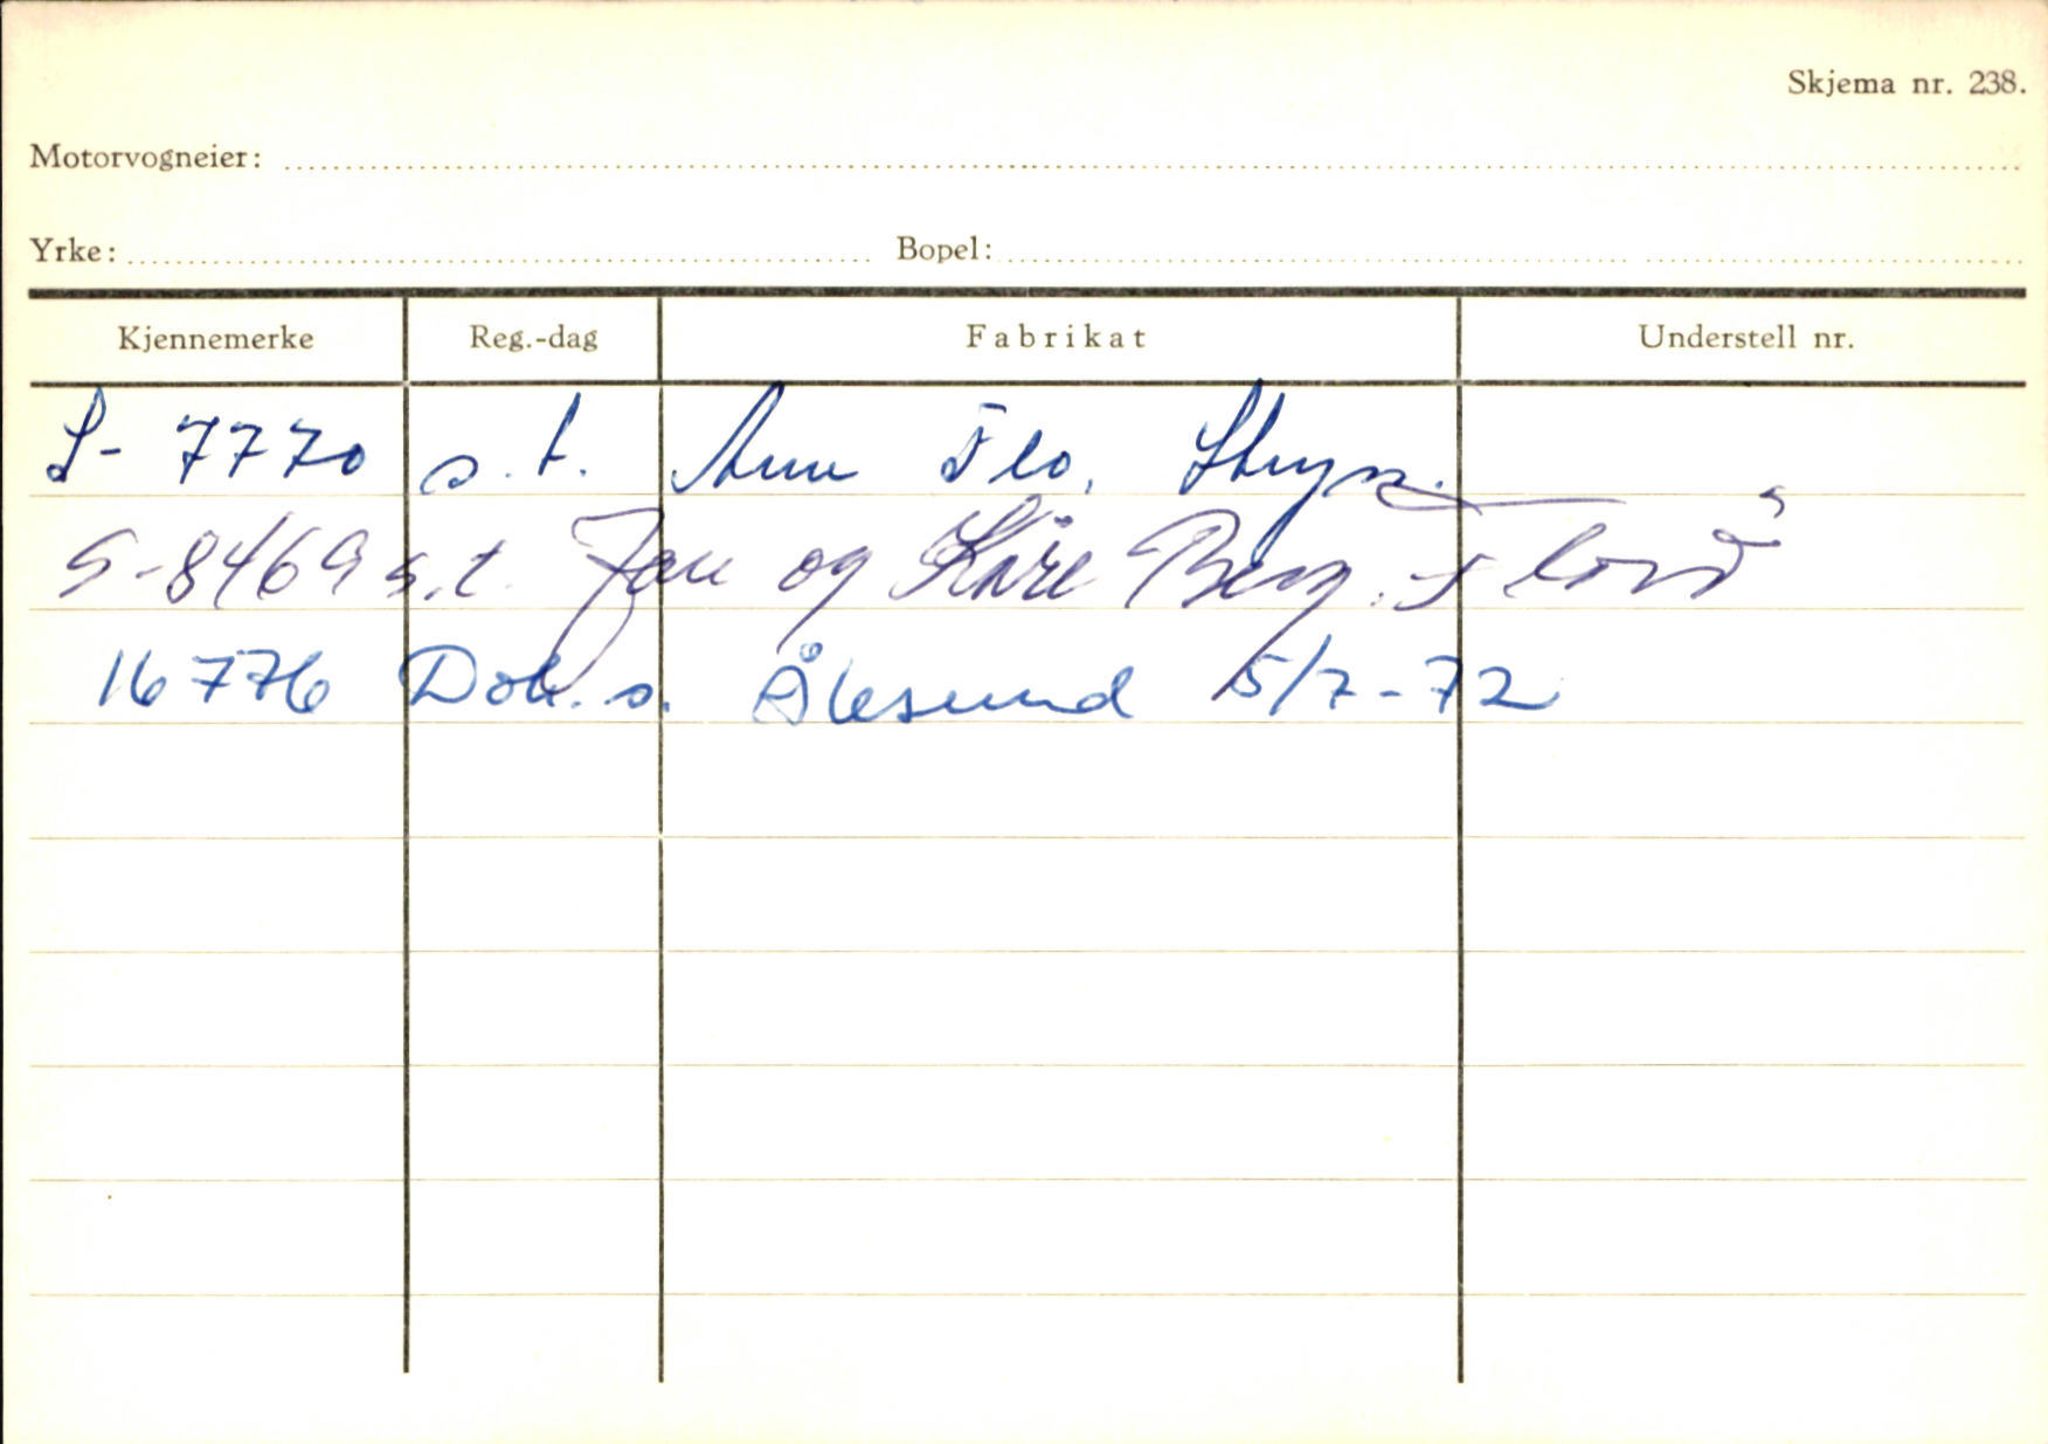 Skjema nr. 238.
Motorvogneier:
Yrke: Bopel:
Kjennemerke Reg.-dag Fabrikat Understell nr.
S- 7770 s.t. Flo, Stryn.
S-8469 s.t. Jan og Kåre Berg. Florö
16776 Dok. s. Ålesund 5/7-72